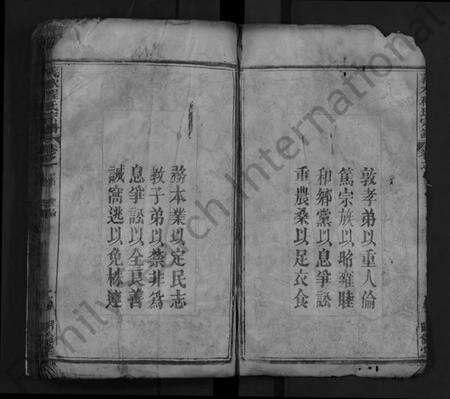 敦孝弟以重人倫
篤宗族以昭雍睦
和鄉黨以息爭訟
重農桑以足衣食
務本業以定民志
教子弟以禁非為
息爭訟以全良善
誡窩逃以免株連
FamilySearch International